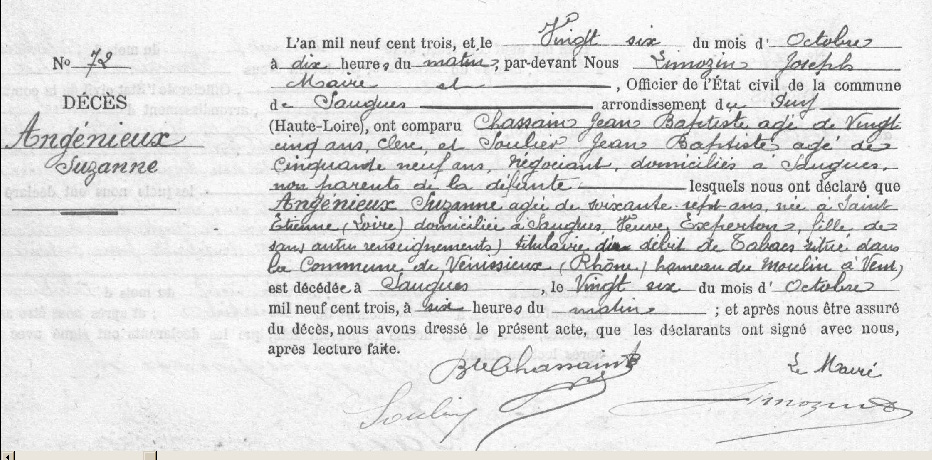 L'an mil neuf cent trois, et le Vingt six du mois d'Octobre
N° 72
à dix heures du matin, par-devant Nous Limozin Joseph
Maire et, Officier de l'État civil de la commune
DÉCÈS
de Saugues arrondissement du Puy
Angénieux
Suzanne
(Haute-Loire), ont comparu Chassain Jean Baptiste agé de Vingt
cinq ans, clerc, et Soulier Jean Baptiste agé de
Cinquante neuf ans, négociant, domiciliés à Saugues,
non parents de la défunte lesquels nous ont déclaré que
Angénieux Suzanne agée de soixante sept ans, née à Saint
Étienne (Loire) domiciliée à Saugues, Veuve Experton, fille de
sans autres renseignements) titulaire débit de Tabacs situé dans
la Commune de Vénissieux (Rhône) hameau du Moulin à Vent,
est décédée à Saugues, le Vingt six du mois d'Octobre
mil neuf cent trois, à six heures du matin ; et après nous être assuré
du décès, nous avons dressé le présent acte, que les déclarants ont signé avec nous,
après lecture faite.
Bte Chassain
Le Maire
Soulier
Limozin